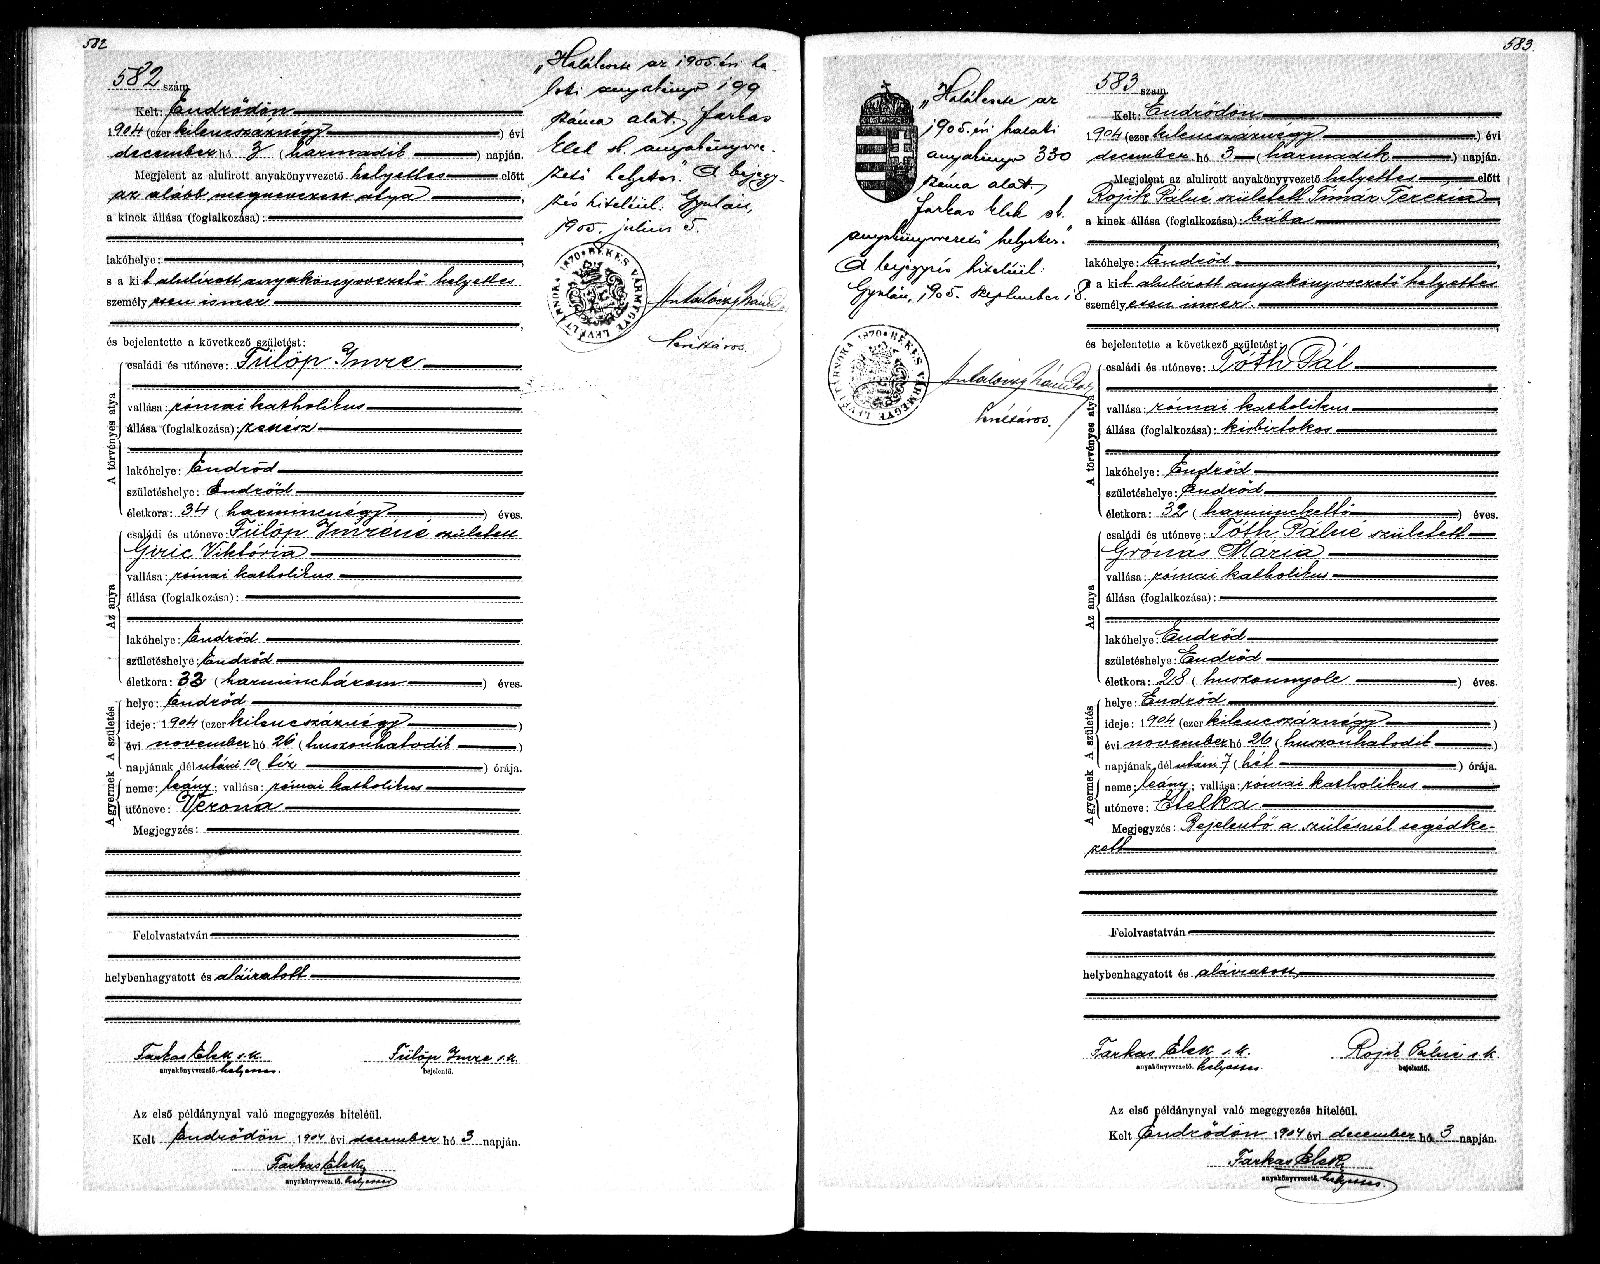 582
582 szám
Kelt: Endrődön
1904 (ezer kilencszáznégy) évi
december hó 3 (harmadik) napján.
Megjelent az alulirott anyakönyvvezető helyettes előtt
az alább megnevezett atya
a kinek állása (foglalkozása):
lakóhelye:
s a kit alulírott anyakönyvvezető helyettes
személyesen ismer
és bejelentette a következő születést:
A törvényes atya
családi és utóneve: Fülöp Imre
vallása: római katholikus
állása (foglalkozása): zenész
lakóhelye: Endrőd
születéshelye: Endrőd
életkora: 34 (harmincnégy) éves.
Az anya
családi és utóneve: Fülöp Imréné született
Giric Viktória
vallása: római katholikus
állása (foglalkozása):
lakóhelye: Endrőd
születéshelye: Endrőd
életkora: 33 (harminchárom) éves.
A születés
helye: Endrőd
ideje: 1904 (ezer kilencszáznégy)
évi november hó 26 (huszonhatodik)
napjának délutáni 10 (tíz) órája.
A gyermek
neme: leány; vallása: római katholikus
utóneve: Verona
Megjegyzés:
Felolvastatván
helybenhagyatott és aláiratott
Farkas Elek s.k. Fülöp Imre s.k.
anyakönyvvezető. helyettes. bejelentő.
Az első példánynyal való megegyezés hiteléül.
Kelt Endrődön 1904 évi december hó 3 napján.
Farkas Elek
anyakönyvvezető. helyettes
„Halálesete az 1905. évi ha-
loti anyakönyv 199
száma alatt. Farkas
Elek st. anyakönyvve-
zető helyettes." A bejegy-
zés hiteléül. Gyulán,
1905. július 5.
BÉKÉS VÁRMEGYE LEVÉLTÁRNOKA 1870
levéltáros.
583
583 szám
Kelt: Endrődön
1904 (ezer kilencszáznégy) évi
december hó 3 (harmadik) napján.
Megjelent az alulirott anyakönyvvezető helyettes előtt
Rojik Pálné született Tímár Terézia
a kinek állása (foglalkozása): bába
lakóhelye: Endrőd
s a kit alulírott anyakönyvvezető helyettes
személyesen ismer.
és bejelentette a következő születést:
A törvényes atya
családi és utóneve: Tóth Pál
vallása: római katholikus
állása (foglalkozása): kisbirtokos
lakóhelye: Endrőd
születéshelye: Endrőd
életkora: 32 (harminckettő) éves.
Az anya
családi és utóneve: Tóth Pálné született
Gronas Mária
vallása: római katholikus
állása (foglalkozása):
lakóhelye: Endrőd
születéshelye: Endrőd
életkora: 28 (huszonnyolc) éves.
A születés
helye: Endrőd
ideje: 1904 (ezer kilencszáznégy)
évi november hó 26 (huszonhatodik)
napjának délutáni 7 (hét) órája.
A gyermek
neme: leány; vallása: római katholikus
utóneve: Etelka
Megjegyzés: Bejelentő a szülésnél segédke-
zett
Felolvastatván
helybenhagyatott és aláiratott,
Farkas Elek s.k. Rojik Pálné s.k.
anyakönyvvezető. helyettes. bejelentő.
Az első példánynyal való megegyezés hiteléül.
Kelt Endrődön 1904 évi december hó 3 napján.
Farkas Elek
anyakönyvvezető. helyettes.
„Halálesete az
1905. évi halati
anyakönyv 330
száma alatt.
Farkas Elek st.
anyakönyvvezető helyettes."
A bejegyzés hiteléül:
Gyulán, 1905. szeptember 18.
BÉKÉS VÁRMEGYE LEVÉLTÁRNOKA 1870
levéltáros.